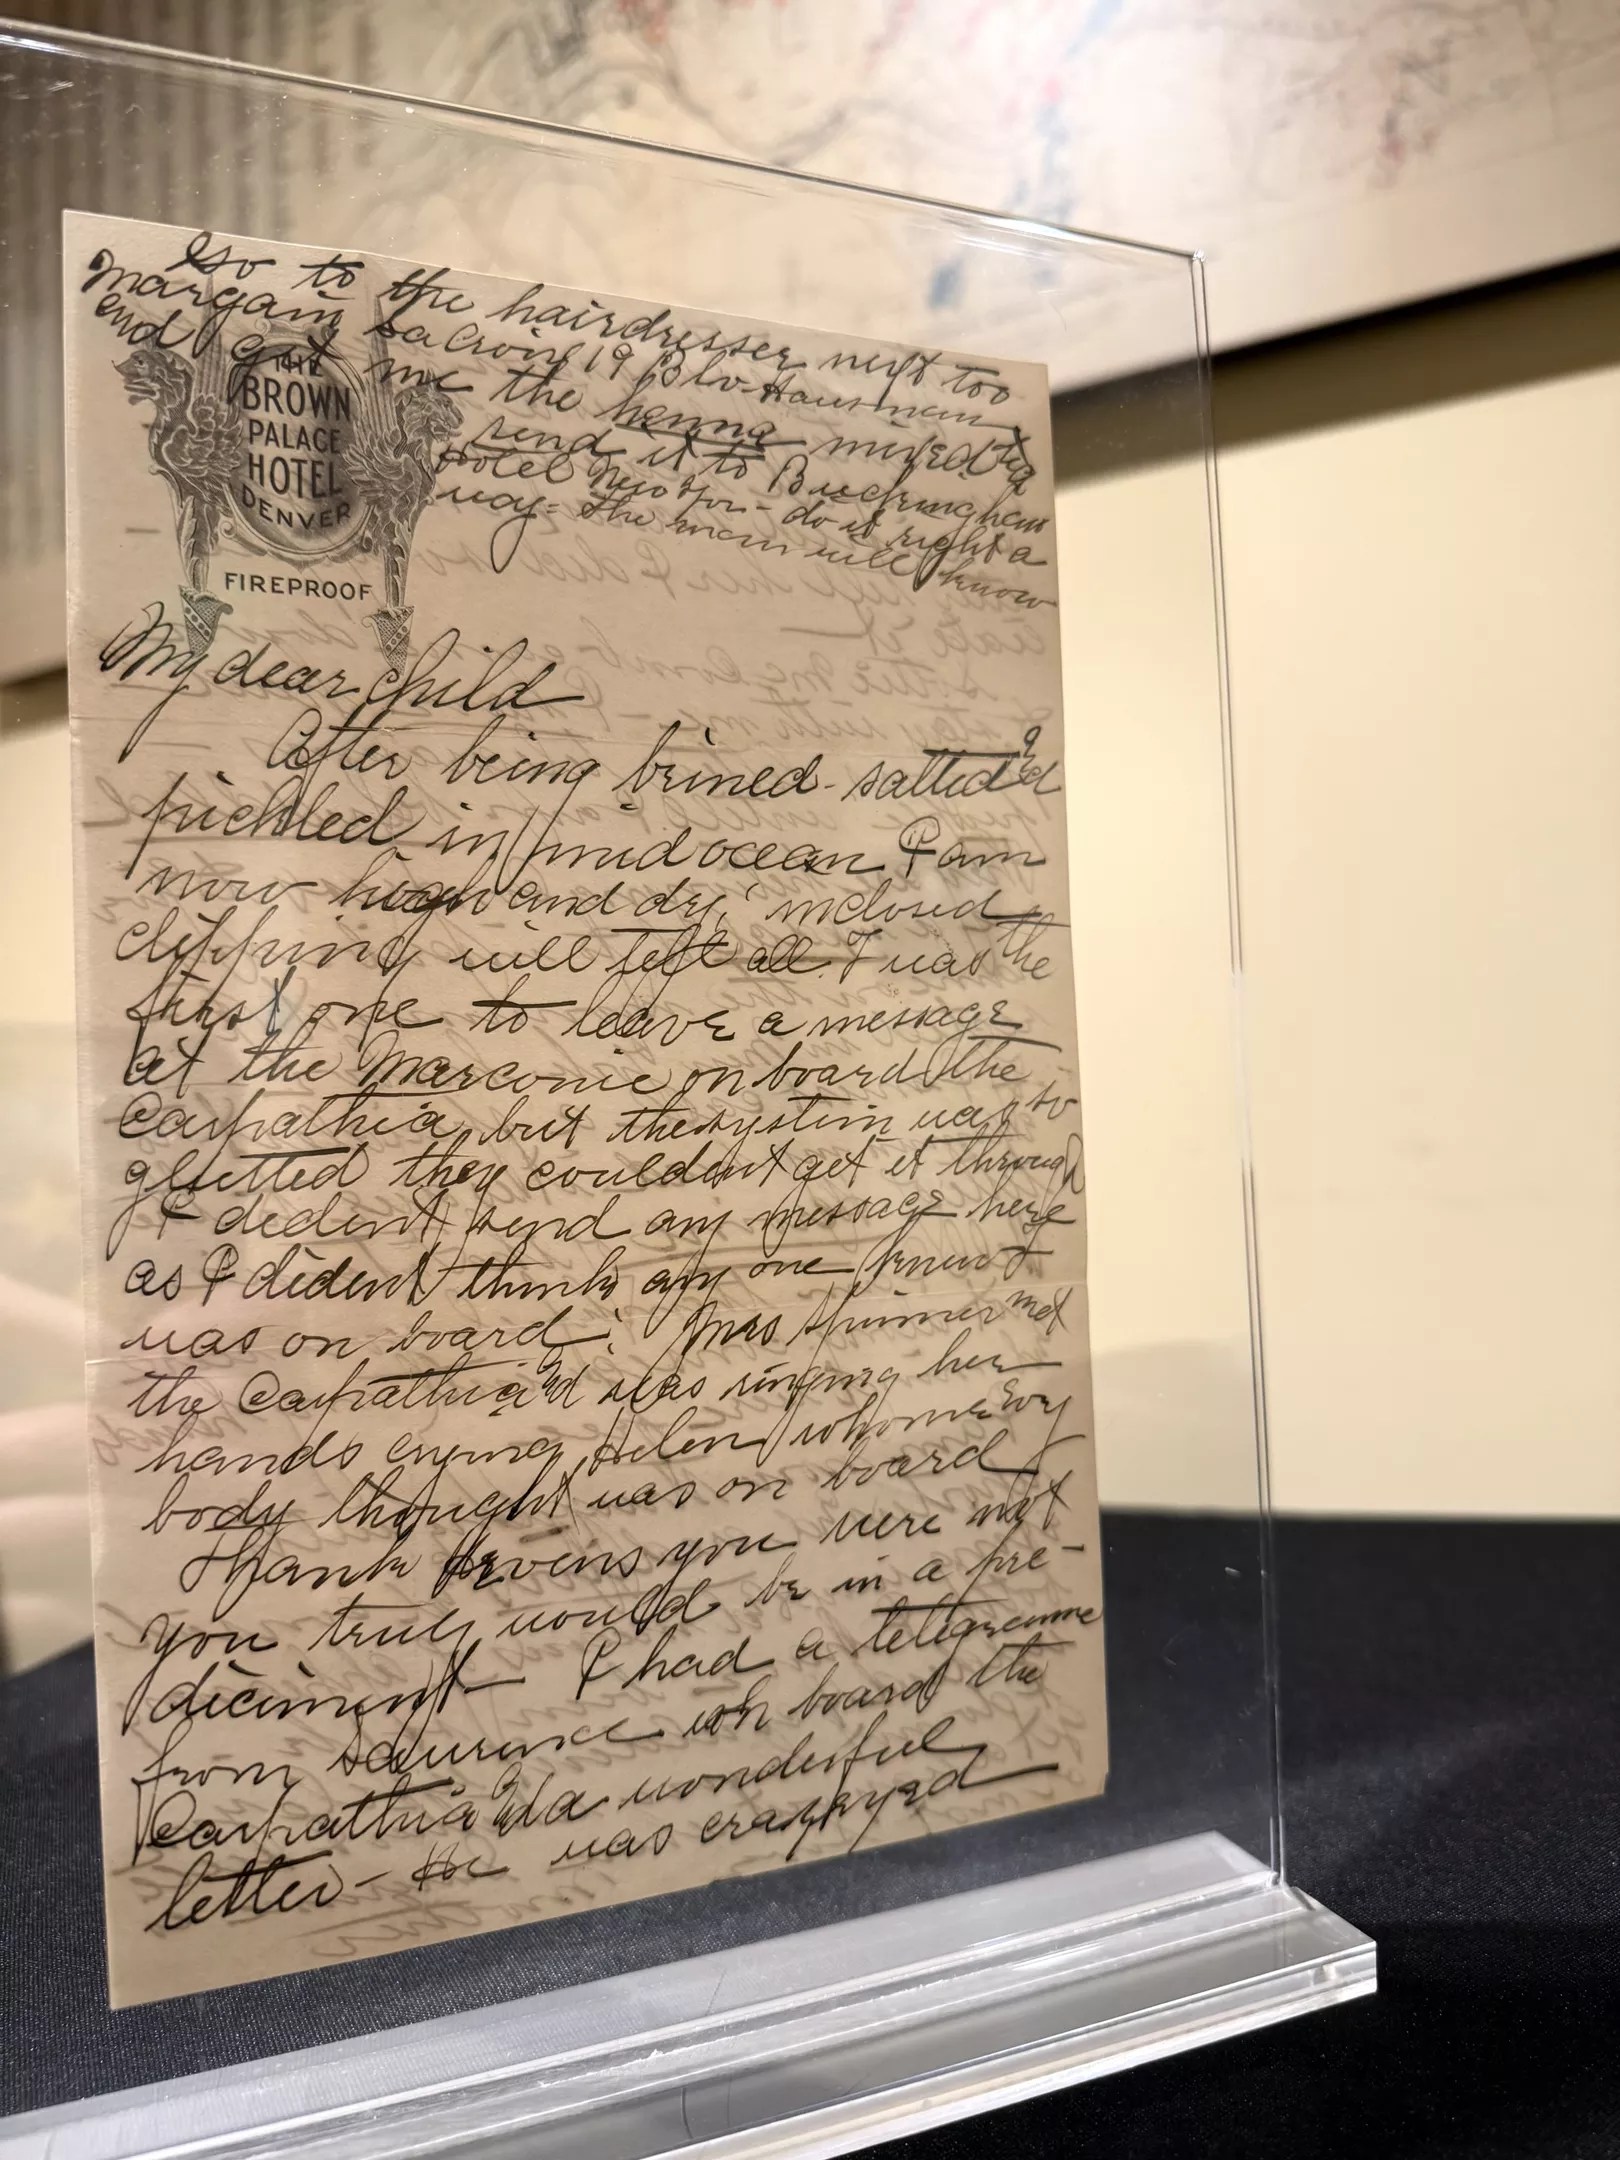 to the hairdresser next too
Margain 19 Blv. Hausmann
and get me the henna mixed
send it to Buckingham
Hotel New Yor- do it right a
way- the man will know
THE
BROWN
PALACE
HOTEL
DENVER
FIREPROOF
My dear child
After being brined - salted & 
pickled in mid ocean I am
now high and dry; inclosed
clipping will tell all. I was the
first one to leave a message
at the Marconie on board the
Carpathia, but the system was so
glutted they couldent get it through
I dident send any message here
as I dident think any one knew I
was on board; Mrs Spinner met
the Carpathia & was ringing her
hands crying Helen whom every
body thought was on board
Thank Hevens you were not
you truly would be in a pre-
diciment - I had a telegramme
from Laurence on board the
Carpathia & a wonderful
letter - He was crazyed